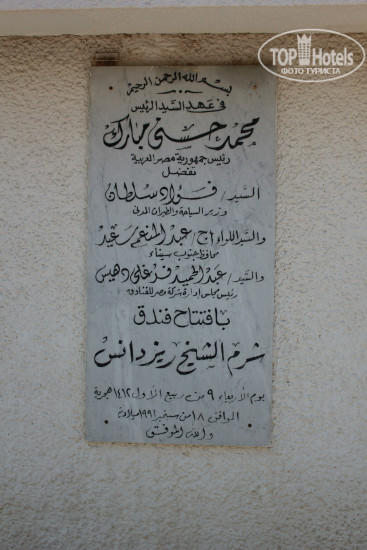 TOPHotels
ФОТО ТУРИСТА
بسم الله الرحمن الرحيم
في عهد السيد الرئيس
محمد حسني مبارك
رئيس جمهورية مصر العربية
تفضل
السيد/ فؤاد سلطان
وزير السياحة والطيران المدني
والسيد اللواء أ.ح/ عبد المنعم سعيد
محافظ جنوب سيناء
والسيد/ عبد الحميد فرغلي دهيس
رئيس مجلس إدارة شركة مصر للفنادق
بافتتاح فندق
شرم الشيخ ريزدانس
يوم الأربعاء ٩ من ربيع الأول ١٤١٢ هجرية
الموافق ١٨ من سبتمبر ١٩٩١ ميلادية
والله الموفق